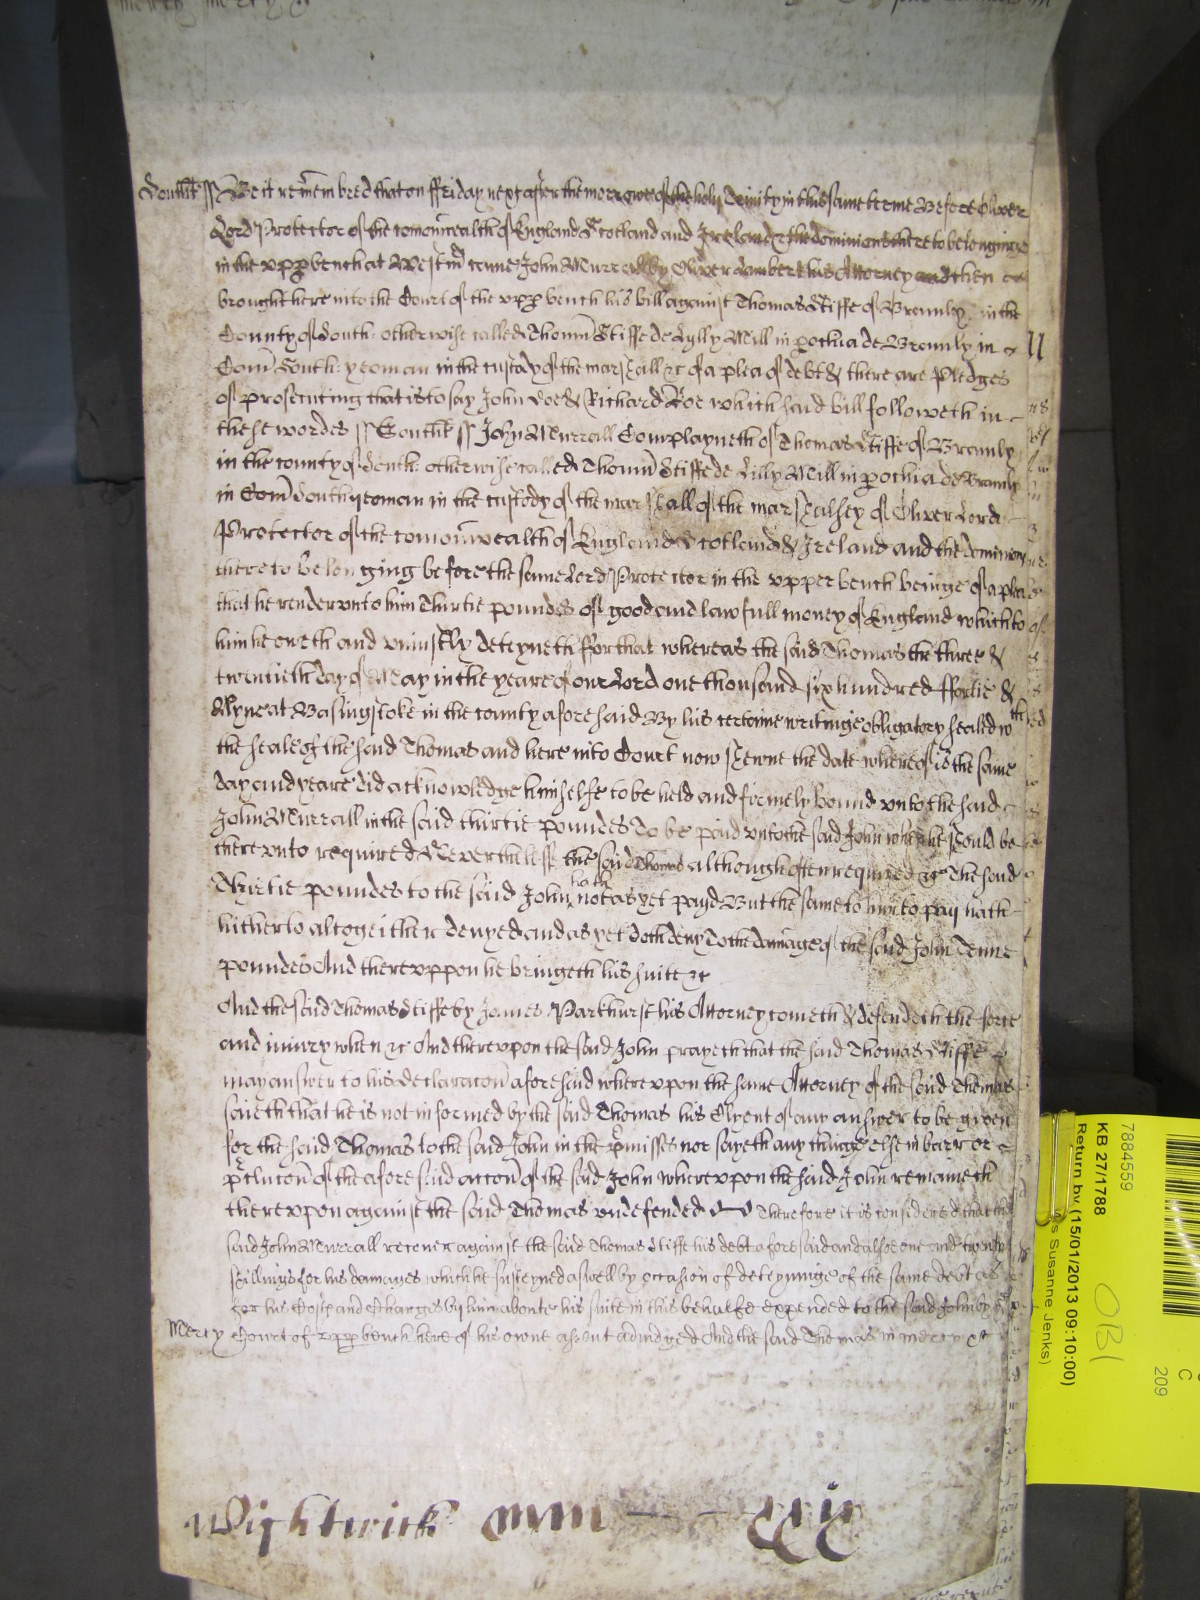 Southt ss Be it remembred that on ffriday next after the morrowe of the holy Trinity in this same terme Before Oliver
Lord Protector of the comonwealth of England Scotland and Ireland & the dominions thereto belonginge
in the upp bench at Westm came John Murrall by Oliver Lambert his Attorney and then
brought here into the Court of the upp bench his bill against Thomas Stiffe of Bramly in the
County of South. otherwise called Thom Stiffe de Lylly Mill in pochia de Bromly in
Com South. yeoman in the custody of the marshall &c of a plea of debt & there are Pledges
of prosecuting that is to say John Doe & Richard Roe which said bill followeth in
these wordes ss Southt ss John Murrall Complayneth of Thomas Stiffe of Bramly
in the county of South. otherwise called Thom Stiffe de Lilly Mill in pochia de Bramly
in Com South yeoman in the custody of the marshall of the marshalsey of Oliver Lord
Protector of the comonwealth of England Scotland & Ireland and the dominions
thereto belonging before the same Lord Protector in the upper bench beinge of a plea
that he render unto him Thirtie poundes of good and lawfull money of England which to
him he oweth and uniustly deteyneth ffor that whereas the said Thomas the three &
twentieth day of May in the yeare of our Lord one thousand six hundred ffortie &
Nyne at Basingstoke in the county aforesaid By his certaine writinge obligatory sealed wth
the seale of the said Thomas and here into Court now shewne the date whereof is the same
day and yeare did acknowledge himselfe to be held and firmely bound unto the said
John Murrall in the said thirtie poundes To be paid unto the said John when he should be
thereunto required Neverthelesse the said Thomas although often required &c The said
Thirtie poundes to the said John hath not as yet payd But the same to him to pay hath
hitherto altogeither denyed and as yet doth deny To the damage of the said John Tenne
poundes And thereuppon he bringeth his suite &c
And the said Thomas Stiffe by James Parkhurst his Attorney cometh & defendeth the force
and iniury when &c And thereupon the said John prayeth that the said Thomas Stiffe
may answer to his declaracon aforesaid whereupon the same Attorney of the said Thomas
saieth that he is not informed by the said Thomas his Clyent of any answer to be given
for the said Thomas to the said John in the pmisses nor sayeth any thinge else in barr or
pclucon of the aforesaid accon of the said John whereupon the said John remaineth
thereupon against the said Thomas undefended Therefore it is considered that the
said John Murrall recover against the said Thomas Stiffe his debt aforesaid and alsoe one and twenty
shillings for his damages which he susteyned aswell by occasion of deteyninge of the same debt as
for his Costs and Charges by him aboute his suite in this behalfe expended to the said John by
Mercy Court of upp bench here of his owne assent adiudged And the said Thomas in mercy &c
Wightwick
7884559
KB 27/1788
Return by (15/01/2013 09:10:00)
Susanne Jenks)
OBI
C
209